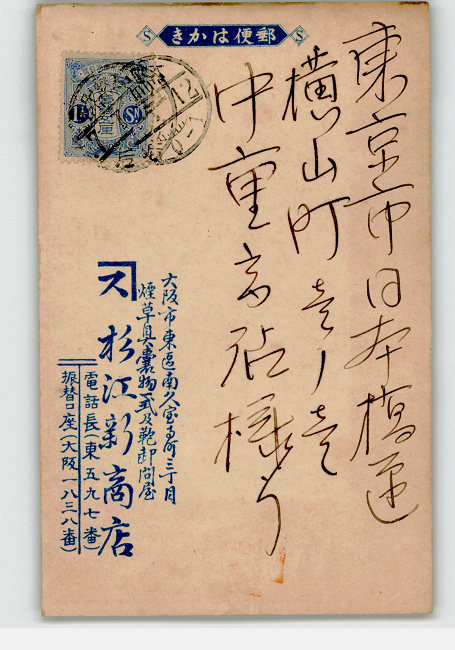 郵便はかき
東京市日本橋區
横山町壱ノ壱
中重商店様
大阪市東區南久宝寺町三丁目
煙草具嚢物一式及鞄卸問屋
ス 杉江新商店
電話長(東五九七番)
振替口座(大阪一八三八番)